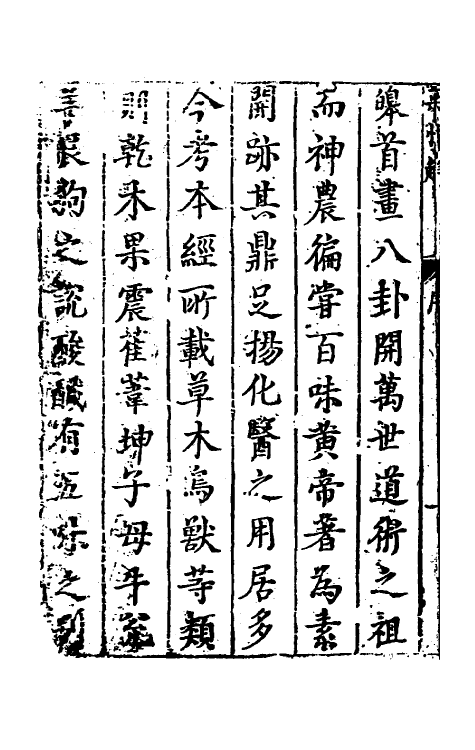 皡首畫八卦開萬世道術之祖
而神農徧嘗百味黄帝著為素
開跡其鼎足揚化醫之用居多
今考本經所載草木鳥獸等類
則乾木果震萑葦坤子母牛
之說酸醎有五味之別